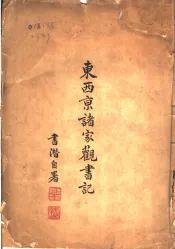 東西京諸家觀書記
書潛自署